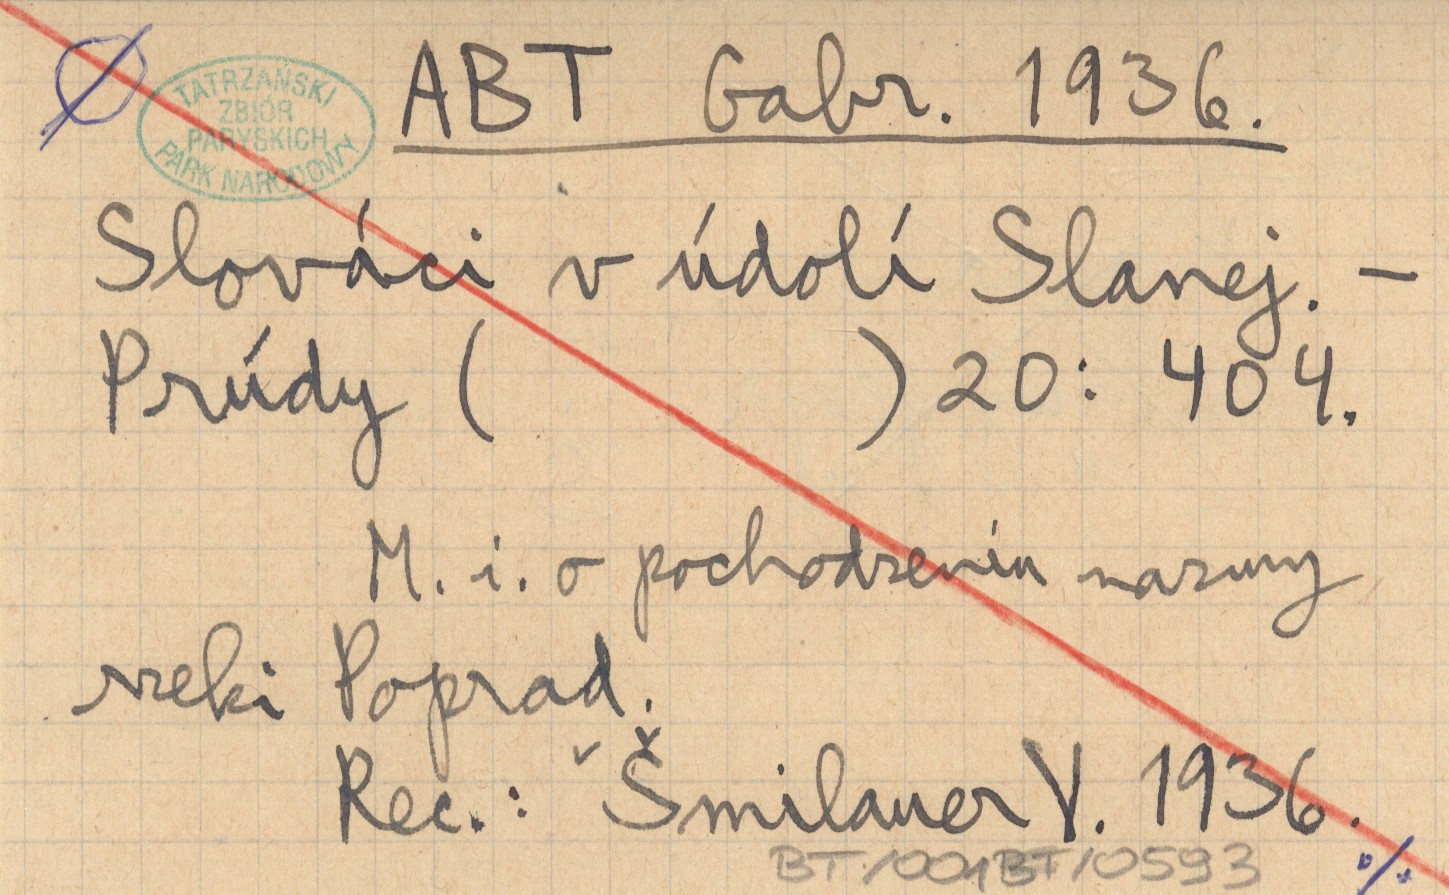 Ø
TATRZAŃSKI
ZBIÓR
PARYSKICH
PARK NARODOWY
ABT Gabr. 1936.
Slováci v údolí Slanej. –
Prúdy ( ) 20: 404.
M. i. o pochodzeniu nazwy
rzeki Poprad.
Rec.: Šmilauer V. 1936.
BT/001BT/0593